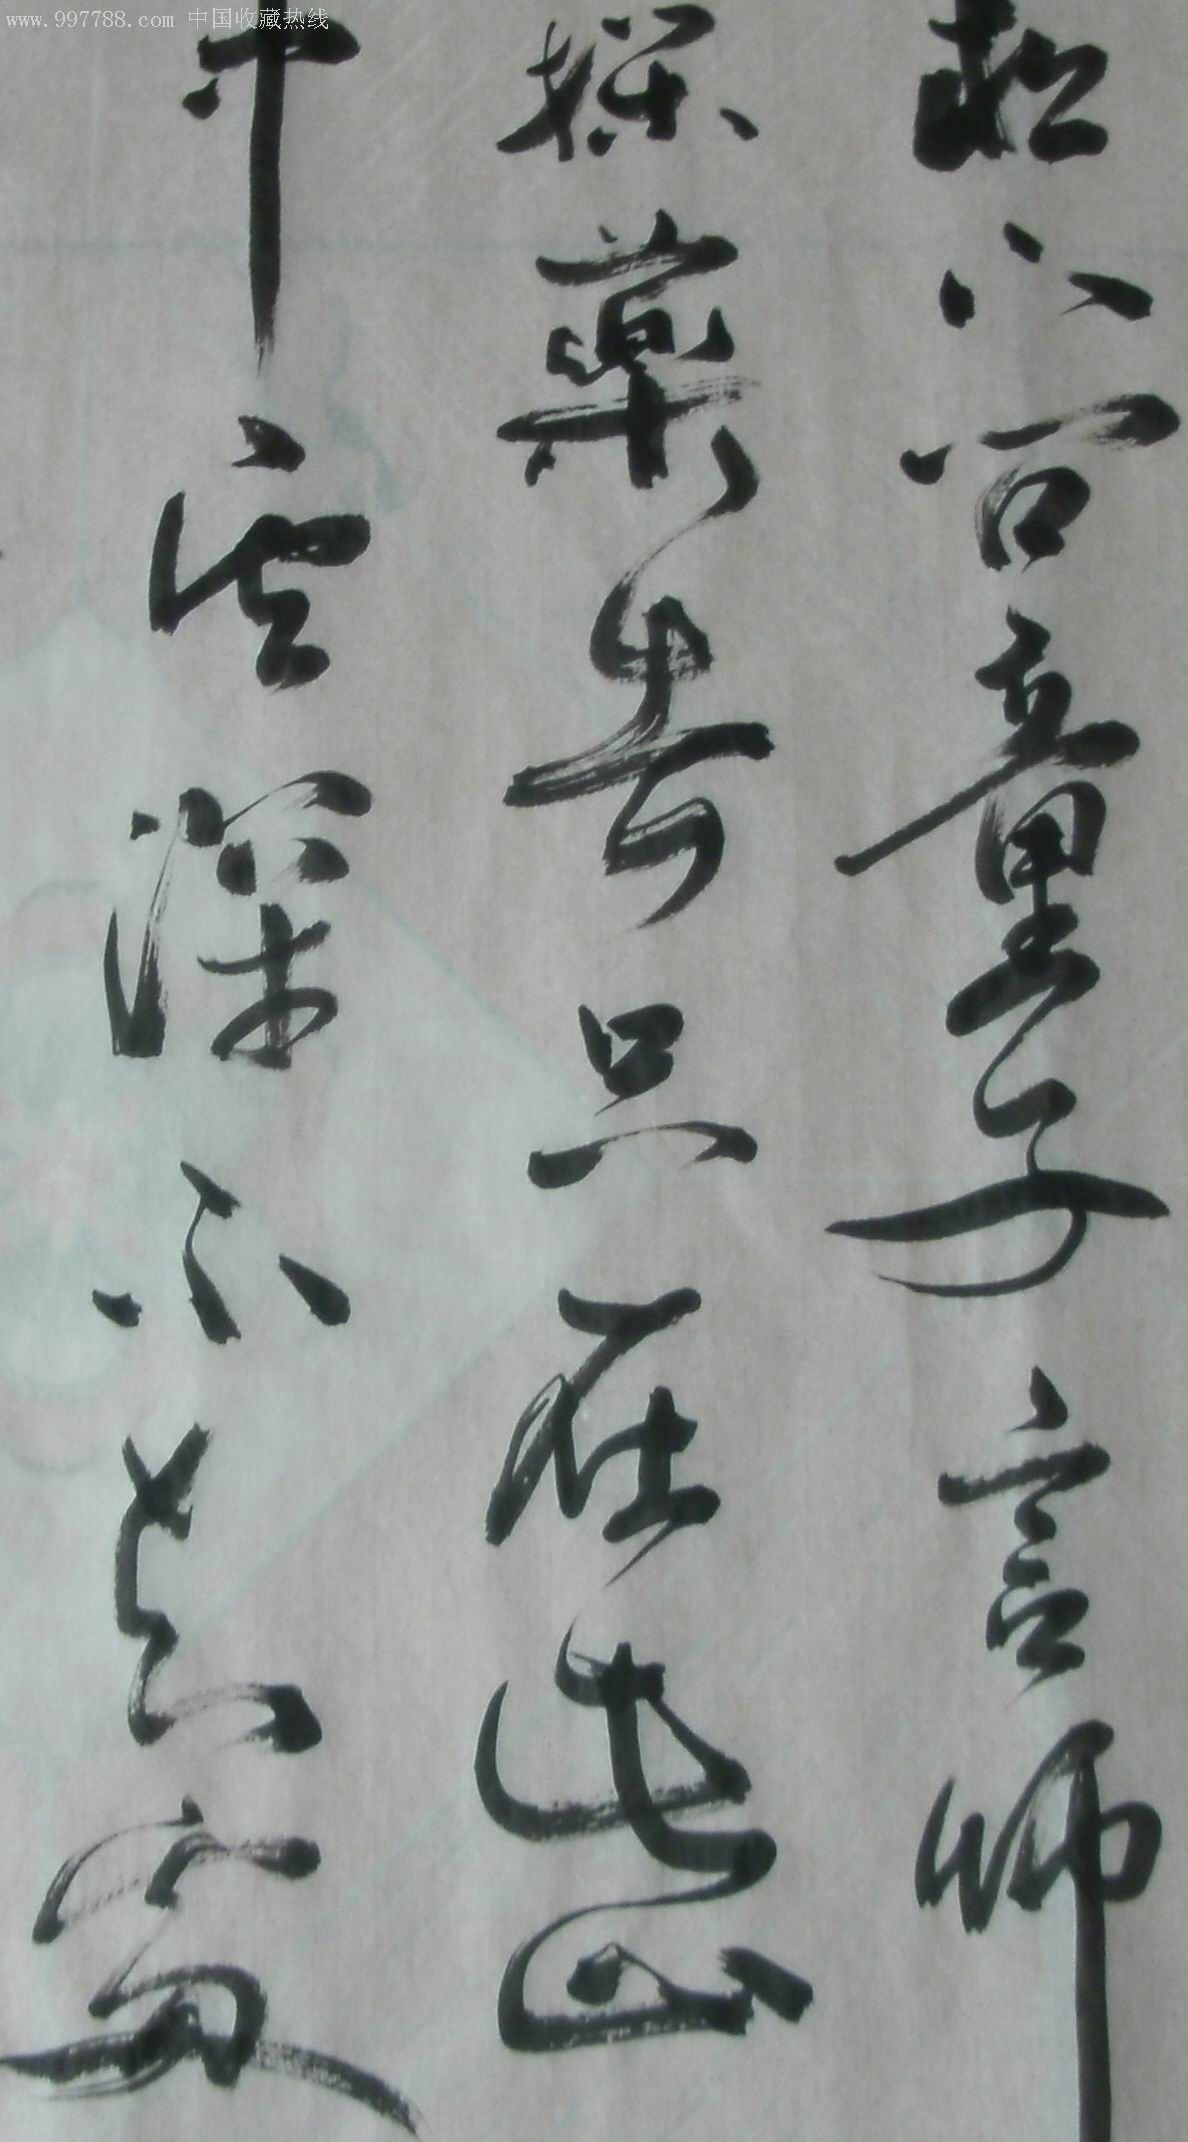 www.997788.com 中国收藏热线
松下问童子言师
採藥去只在此山
中雲深不知處